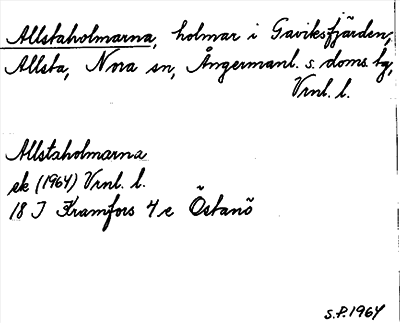 Allstaholmarna, holmar i Gaviksfjärden,
Allsta, Nora sn, Ångermanl. s. doms. tg,
Vrnl. l.
Allstaholmarna
ek (1964) Vrnl. l.
18 I Kramfors 4 e Östanö
S.P. 1964